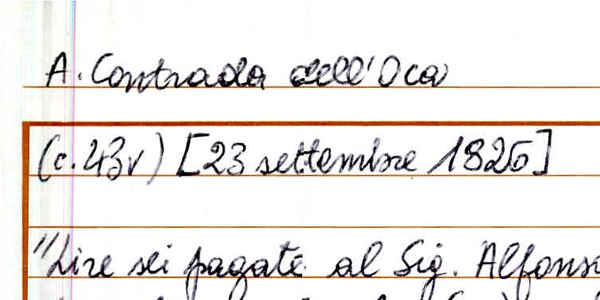 A. Contrada dell'Oca
(c. 43v) [23 settembre 1826]
"Lire sei pagate al Sig. Alfonso